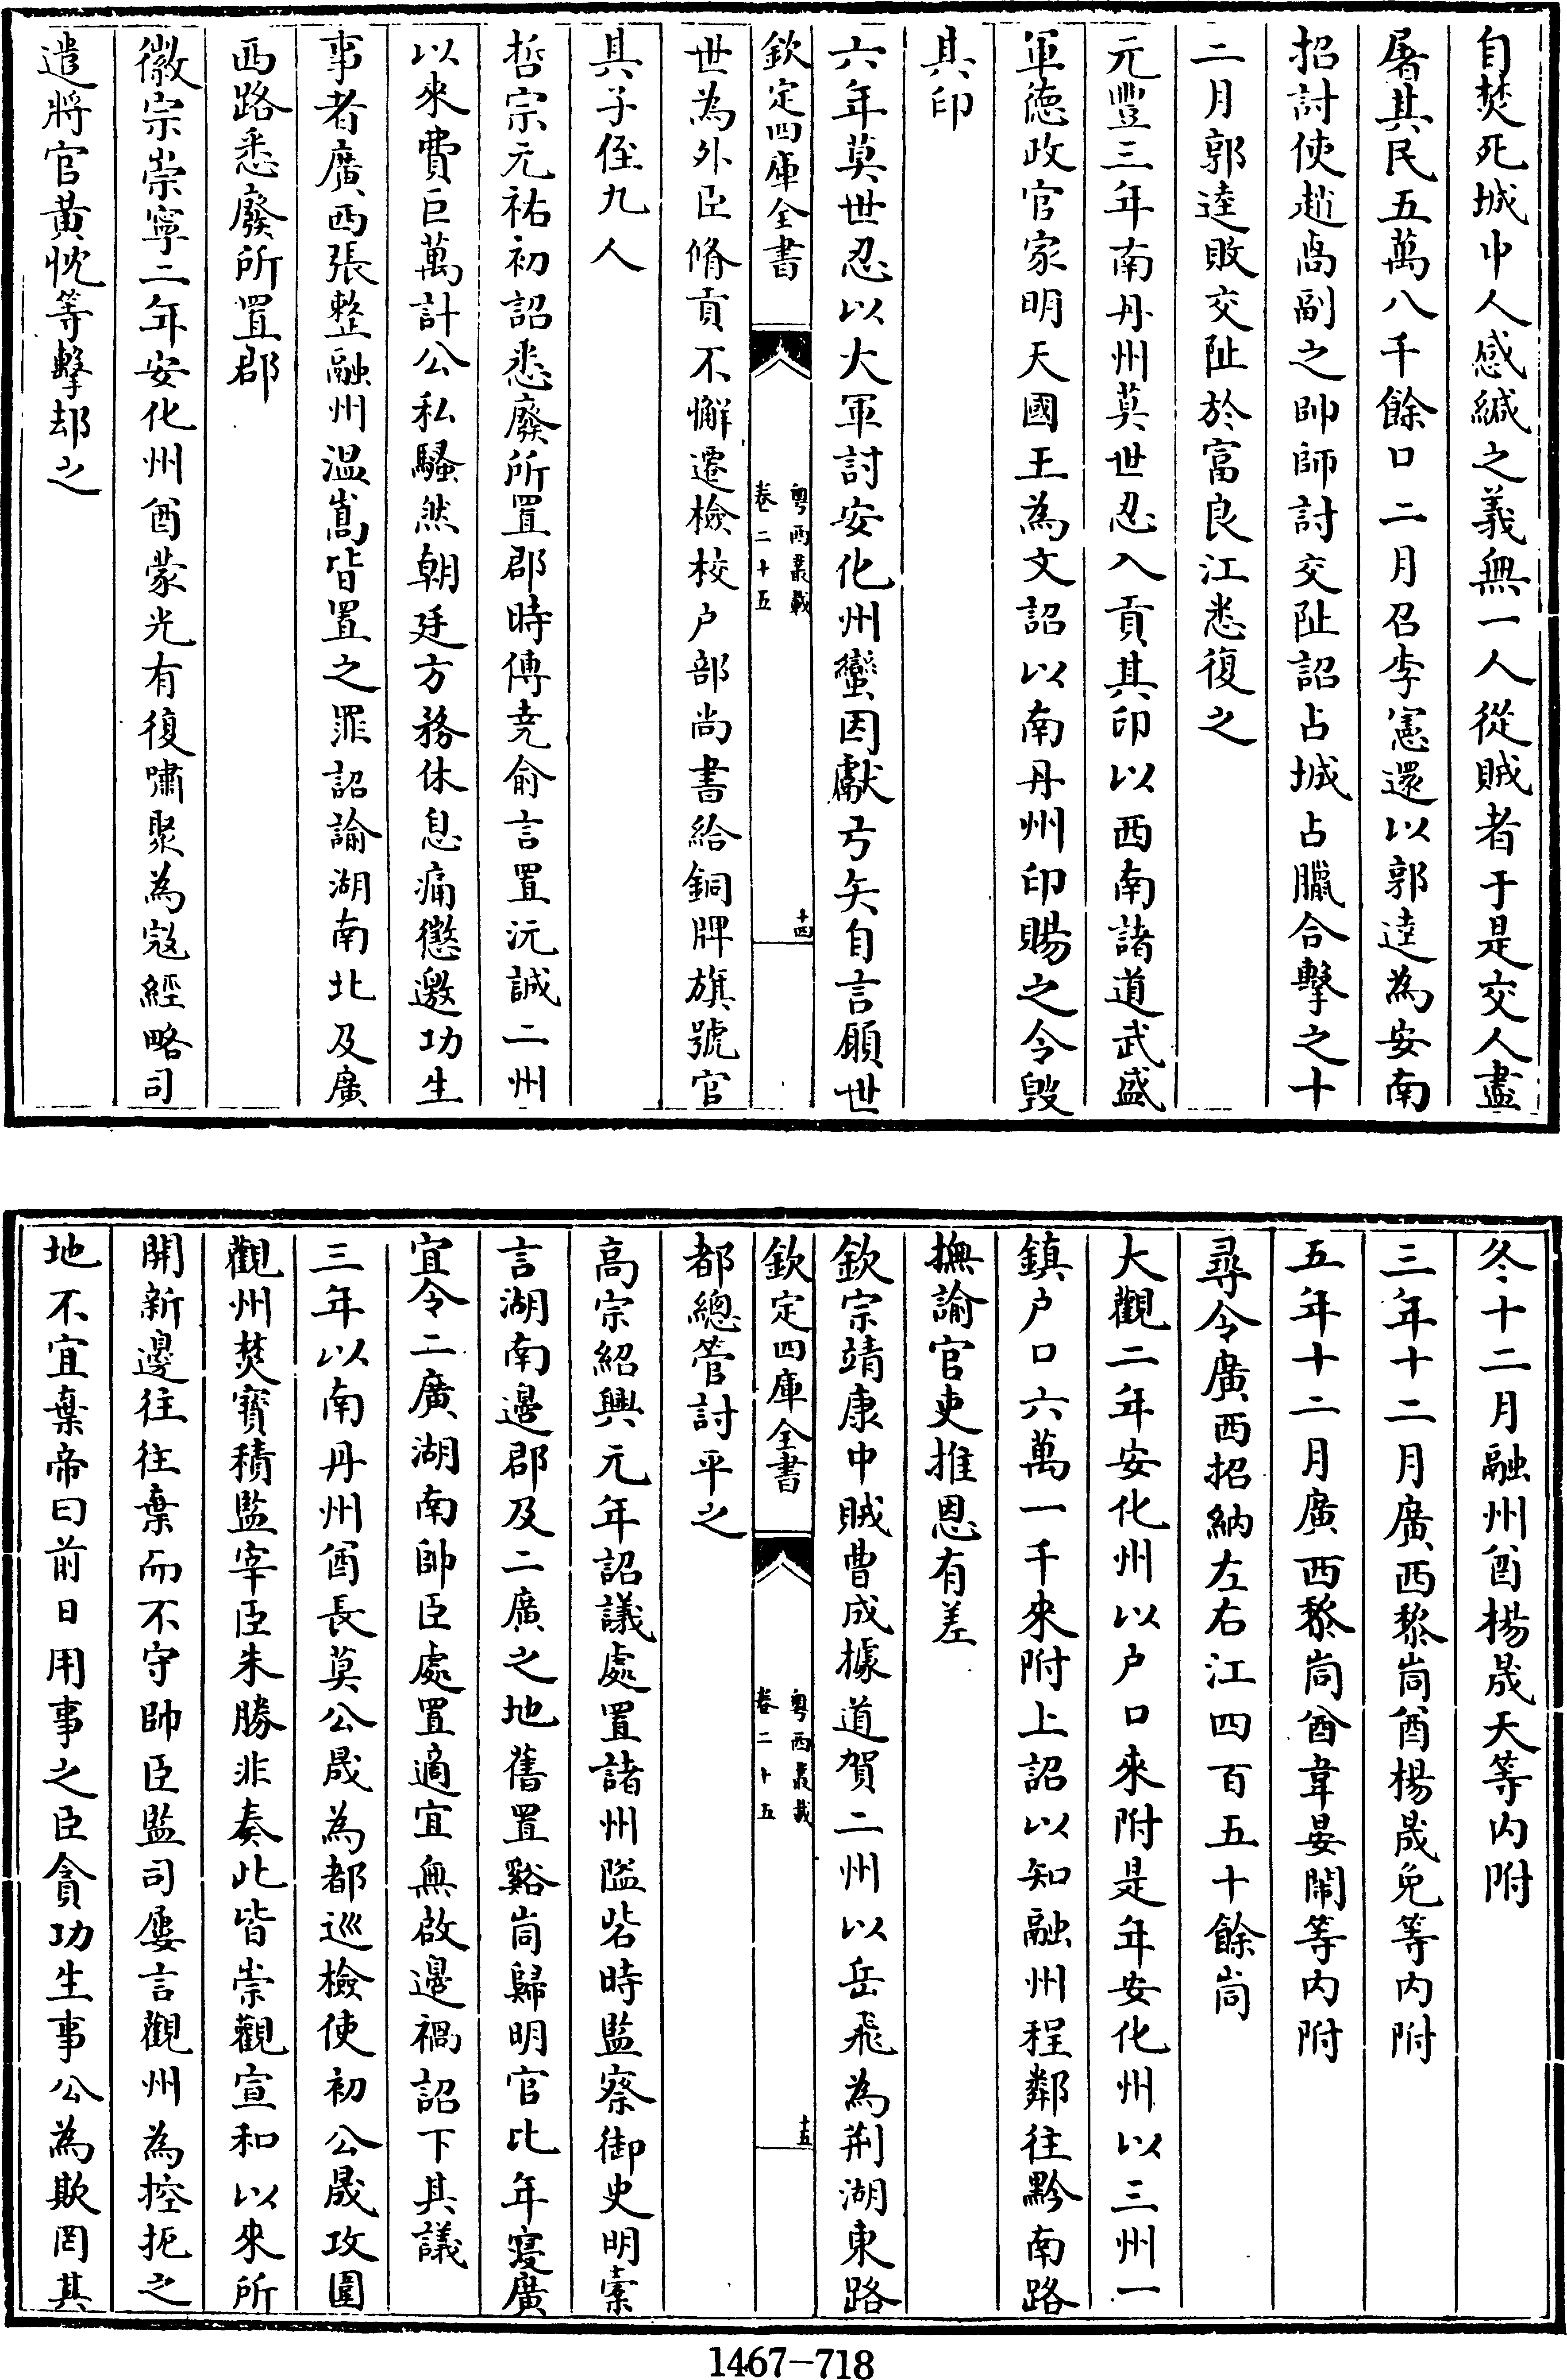 自焚死城中人感緘之義無一人從賊者于是交人盡
屠其民五萬八千餘口二月召李憲還以郭逵為安南
招討使趙卨副之帥師討交阯詔占城占臘合擊之十
二月郭逵敗交阯於富良江悉復之
元豐三年南丹州莫世忍入貢其印以西南諸道武盛
軍德政官家明天國王為文詔以南丹州印賜之令毀
其印
六年莫世忍以大軍討安化州蠻因獻弓矢自言願世
欽定四庫全書
粵西叢載
卷二十五
十四
世為外臣脩貢不懈遷檢校户部尚書給銅牌旗號官
其子侄九人
哲宗元祐初詔悉廢所置郡時傅堯俞言置沅誠二州
以來費巨萬計公私騷然朝廷方務休息痛懲邀功生
事者廣西張整融州温嵩皆置之罪詔諭湖南北及廣
西路悉廢所置郡
徽宗崇寧二年安化州酋蒙光有復嘯聚為寇經略司
遣將官黃忱等擊却之
冬十二月融州酋楊晟天等内附
三年十二月廣西黎峝酋楊晟免等内附
五年十二月廣西黎峝酋韋晏閙等内附
尋令廣西招納左右江四百五十餘峝
大觀二年安化州以户口來附是年安化州以三州一
鎮户口六萬一千來附上詔以知融州程鄰往黔南路
撫諭官吏推恩有差
欽宗靖康中賊曹成據道賀二州以岳飛為荆湖東路
欽定四庫全書
粵西叢載
卷二十五
十五
都總管討平之
高宗紹興元年詔議處置諸州隘砦時監察御史明橐
言湖南邊郡及二廣之地舊置谿峝歸明官比年寖廣
宜令二廣湖南帥臣處置適宜無啟邊禍詔下其議
三年以南丹州酋長莫公晟為都巡檢使初公晟攻圍
觀州焚寶積監宰臣朱勝非奏此皆崇觀宣和以來所
開新邊往往棄而不守帥臣監司屢言觀州為控扼之
地不宜棄帝曰前日用事之臣貪功生事公為欺罔其
1467-718